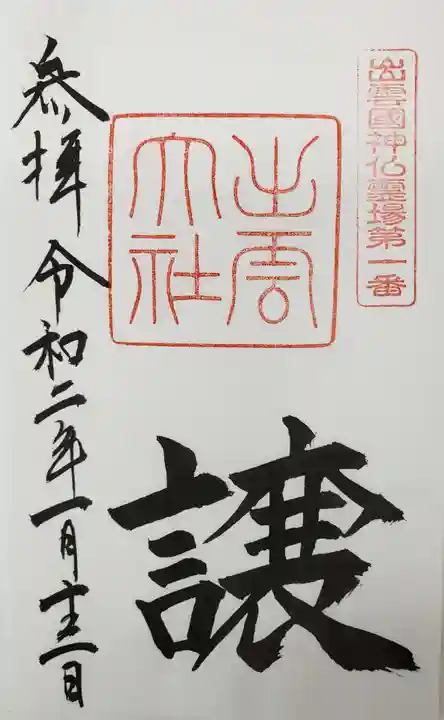 出雲國神仏霊場第一番
出雲
大社
譲
参拝 令和二年一月十三日